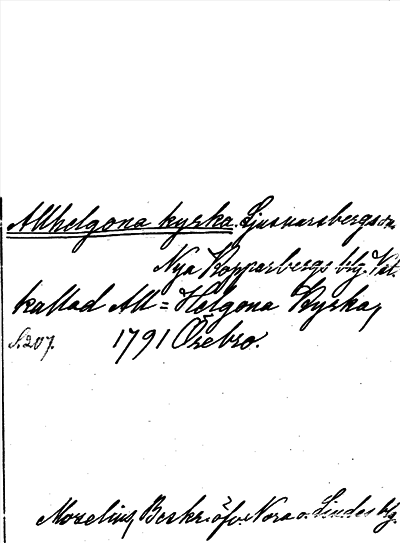 Allhelgona kyrka. Ljusnarsbergs sn.
Nya Kopparbergs blg. Väst.
kallad All=Helgona Kyrka,
S. 207. 1791 Örebro.
Morelius, Beskr. öfv. Nora o. Lindes blg.